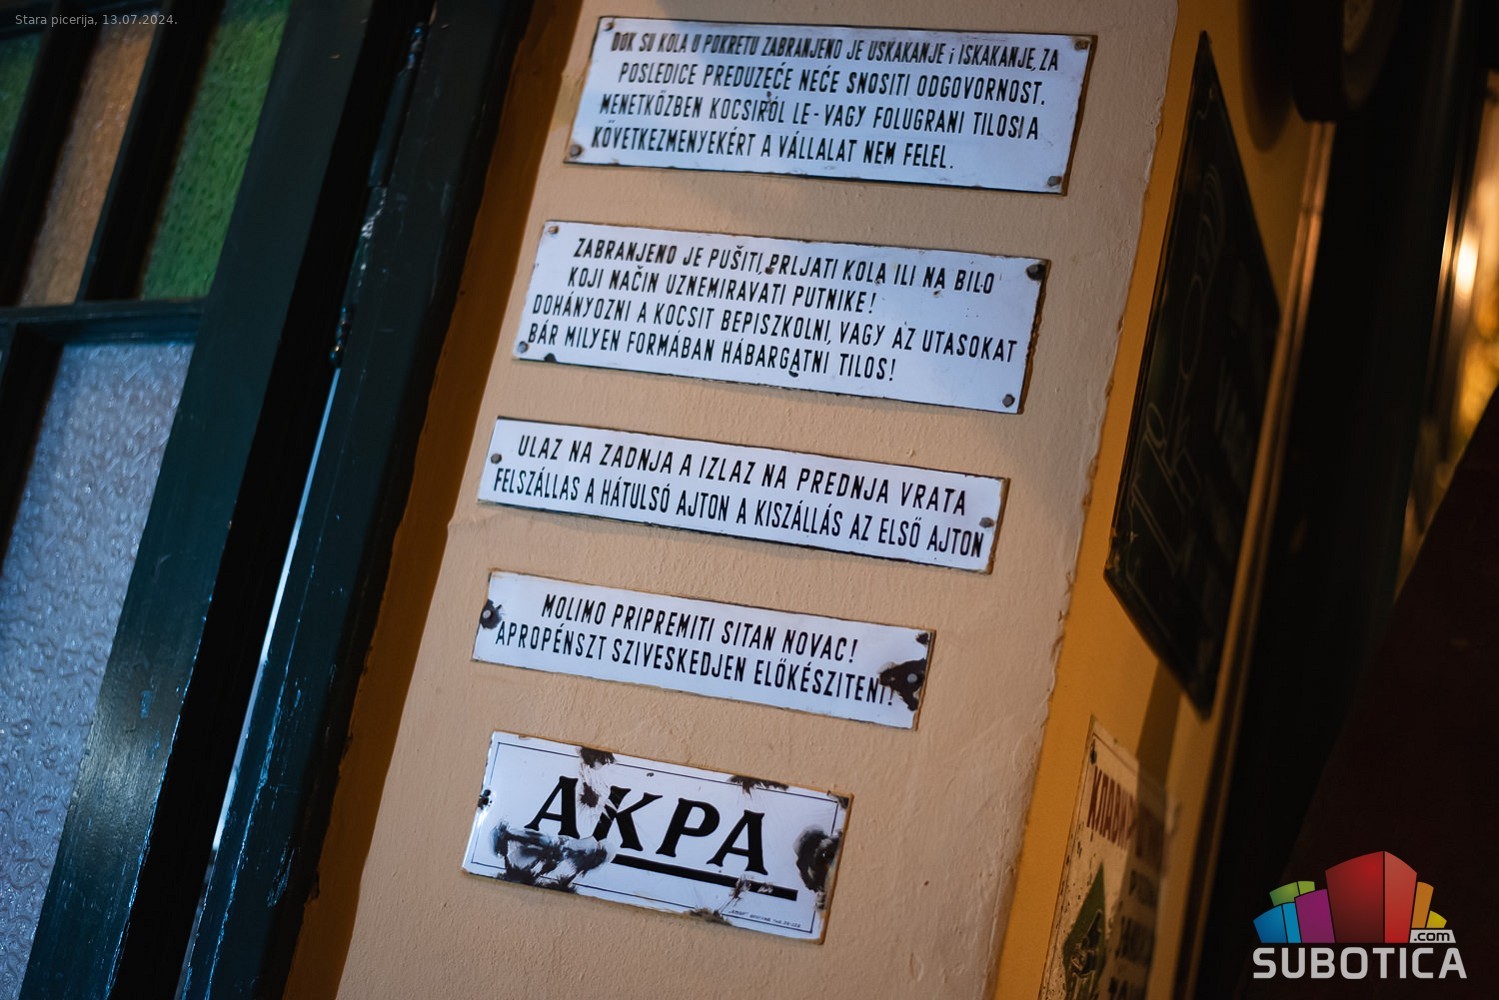 Stara picerija, 13.07.2024.
DOK SU KOLA U POKRETU ZABRANJENO JE USKAKANJE i ISKAKANJE, ZA
POSLEDICE PREDUZEĆE NEĆE SNOSITI ODGOVORNOST.
MENETKÖZBEN KOCSIRÓL LE-VAGY FOLUGRANI TILOSI A
KÖVETKEZMENYEKÉRT A VÁLLALAT NEM FELEL.
ZABRANJENO JE PUŠITI, PRLJATI KOLA ILI NA BILO
KOJI NAČIN UZNEMIRAVATI PUTNIKE!
DOHÁNYOZNI A KOCSIT BEPISZKOLNI, VAGY AZ UTASOKAT
BÁR MILYEN FORMÁBAN HÁBARGATNI TILOS!
ULAZ NA ZADNJA A IZLAZ NA PREDNJA VRATA
FELSZÁLLAS A HÁTULSÓ AJTON A KISZÁLLÁS AZ ELSŐ AJTON
MOLIMO PRIPREMITI SITAN NOVAC!
APROPÉNSZT SZIVESKEDJEN ELŐKÉSZITENI!
AKPA
.com
SUBOTICA